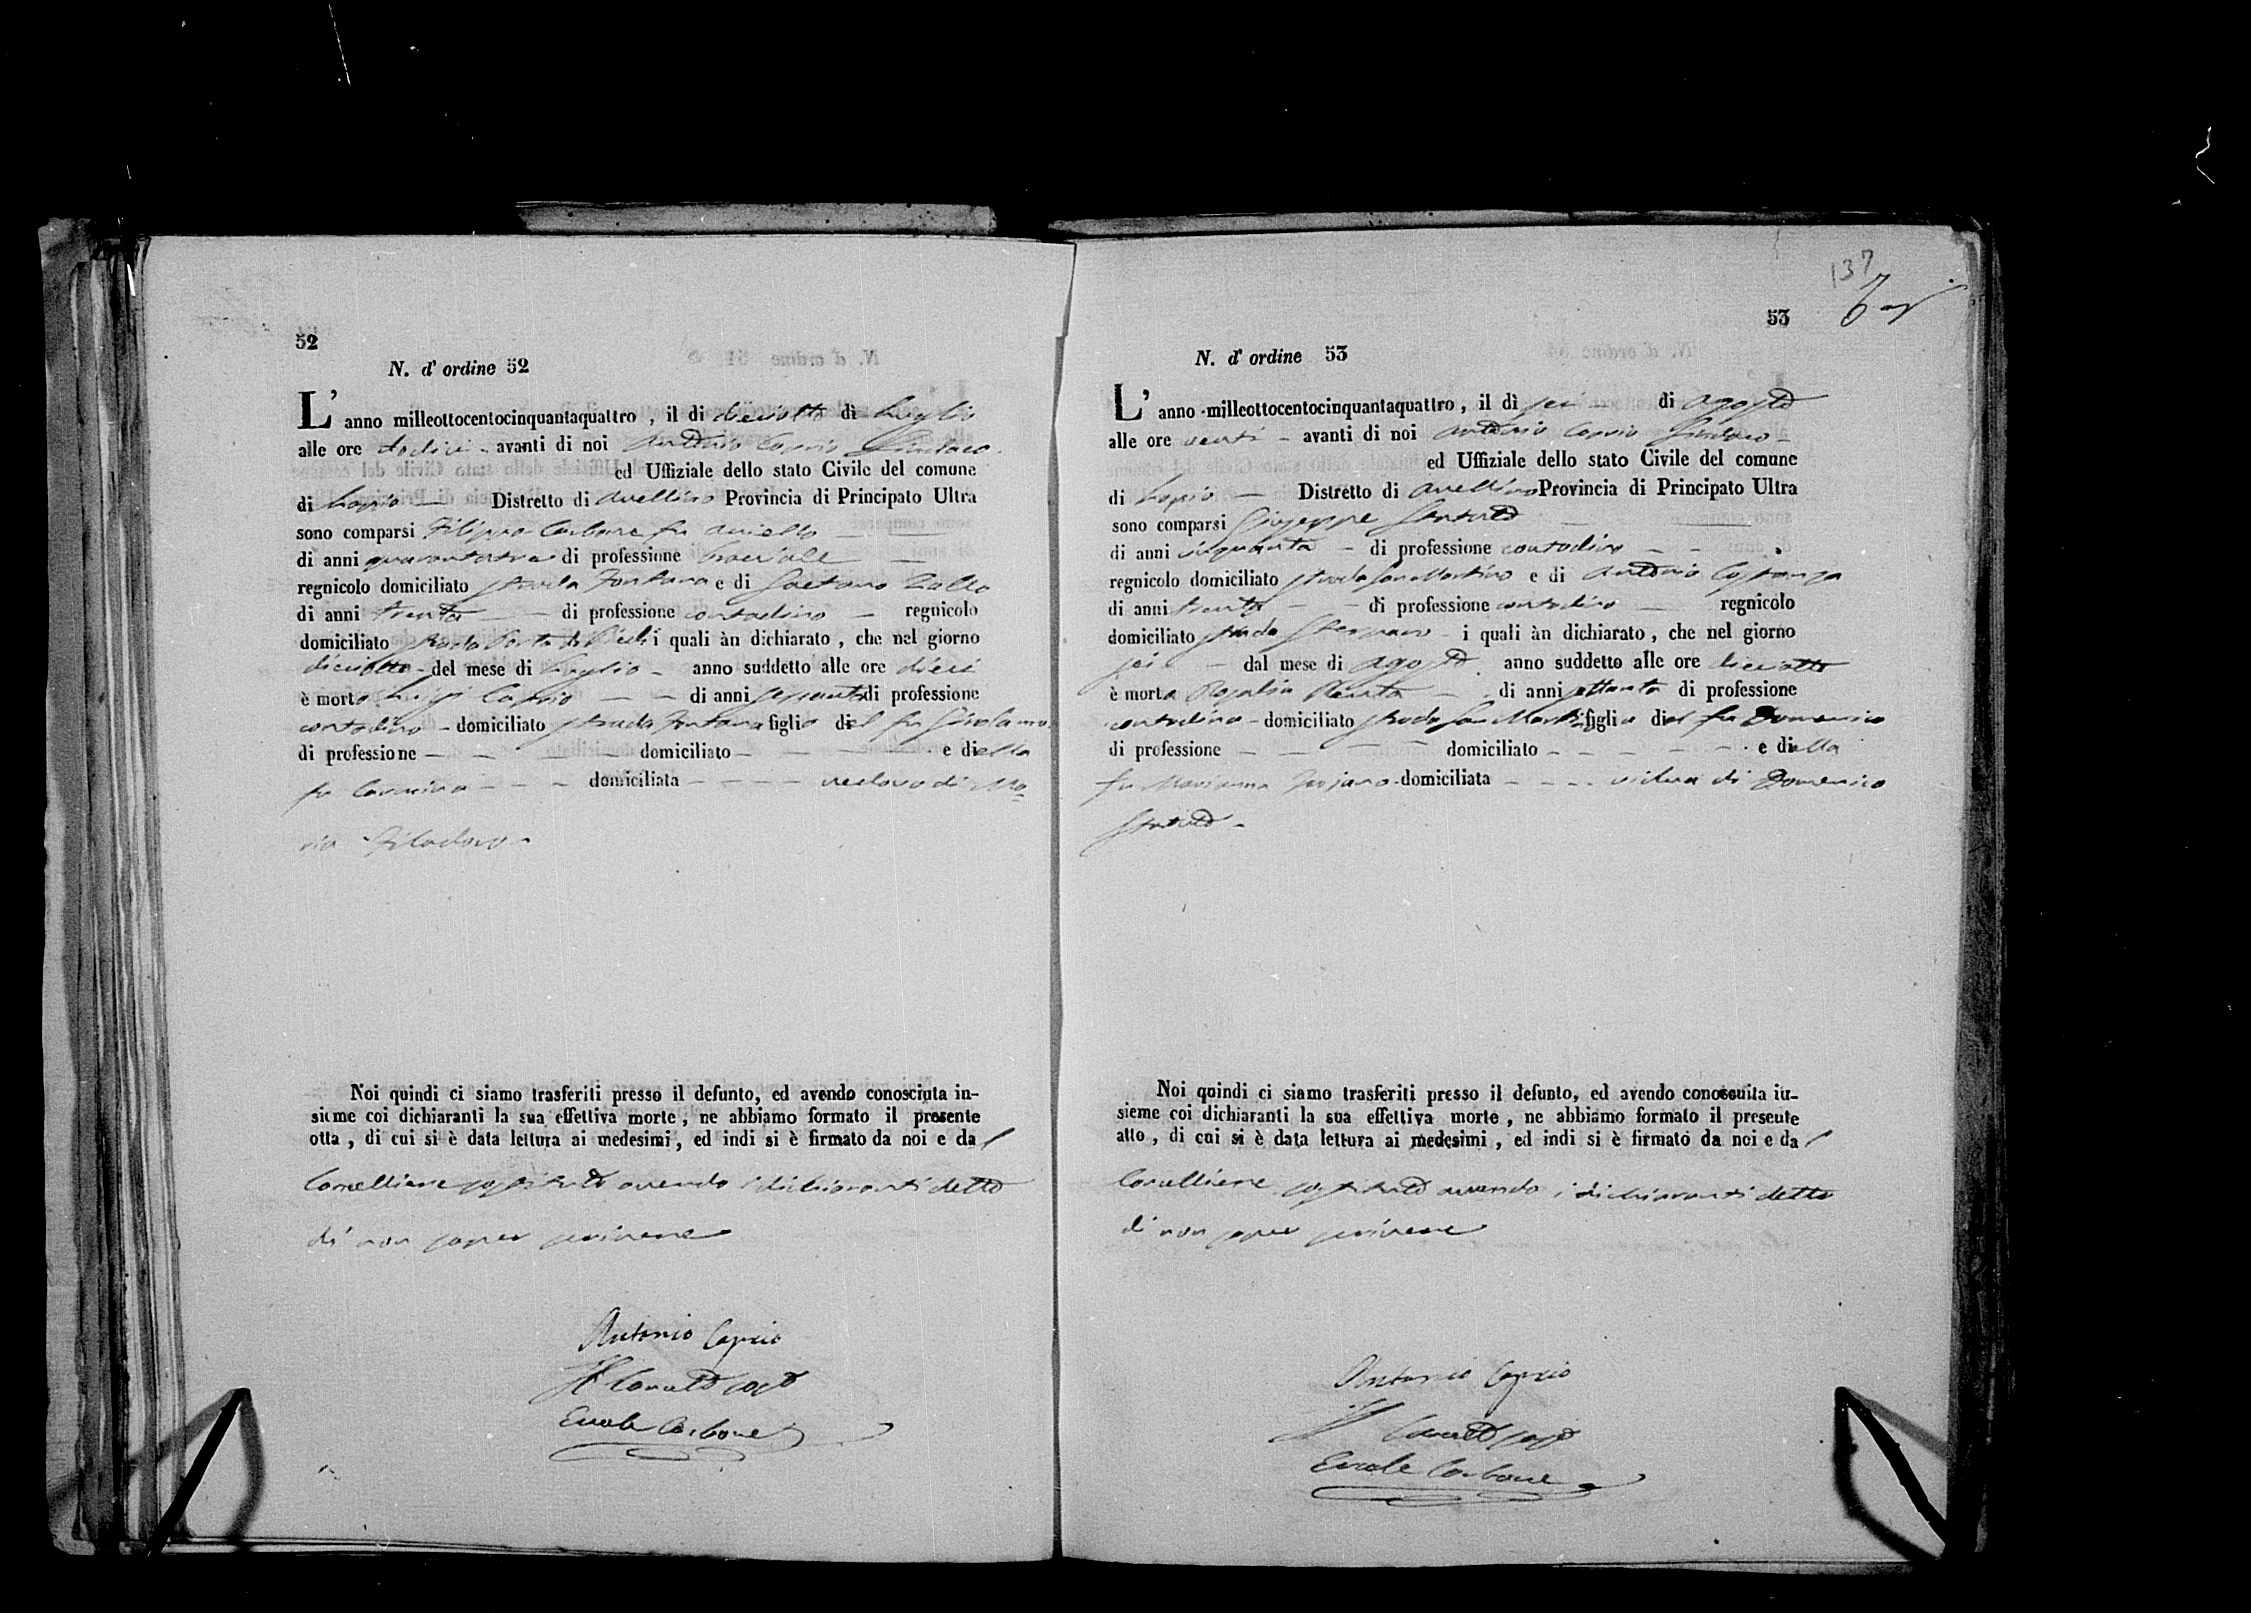 52
N. d' ordine 52
L' anno milleottocentocinquantaquattro, il di dieciotto di Luglio
alle ore dodici - avanti di noi Antonio Caprio Sindaco
ed Uffiziale dello stato Civile del comune
di Lapio — Distretto di Avellino Provincia di Principato Ultra
sono comparsi Filippo Carbone fu Aniello
di anni quarantatre di professione
regnicolo domiciliato strada Fontana e di Gaetano
di anni trenta — di professione contadino — regnicolo
domiciliato strada Porta di i quali àn dichiarato, che nel giorno
dieciotto del mese di Luglio - anno suddetto alle ore dieci
è morto Luigi Caprio — — di anni sessanta di professione
contadino - domiciliato strada Fontana figlio del fu Girolamo
di professione — — — — domiciliato — — — e della
fu Carmina - - - domiciliata - - - - vedovo di Ma=
ria Filadoro -
Noi quindi ci siamo trasferiti presso il defunto, ed avendo conosciuta in-
sieme coi dichiaranti la sua effettiva morte, ne abbiamo formato il presente
otta, di cui si è data lettura ai medesimi, ed indi si è firmato da noi e dal
Cancelliere sostituto avendo i dichiaranti detto
di non saper scrivere
Antonio Caprio
Il Cancell sost
Ercole Carbone
137
53
N. d' ordine 53
L' anno milleottocentocinquantaquattro, il dì sei — di Agosto
alle ore venti - avanti di noi Antonio Caprio Sindaco -
ed Uffiziale dello stato Civile del comune
di Lapio — Distretto di Avellino Provincia di Principato Ultra
sono comparsi Giuseppe
di anni cinquanta - di professione contadino — —
regnicolo domiciliato strada San Martino e di Antonio Costanza
di anni trenta - - di professione contadino — regnicolo
domiciliato strada - i quali àn dichiarato, che nel giorno
sei — dal mese di Agosto anno suddetto alle ore dieciotto
è morta Rosalia — di anni ottanta di professione
contadina - domiciliato strada San Martino figlia del fu Domenico
di professione — — — — domiciliato - - - - e della
fu Marianna Trojano domiciliata - - - - vidua di Domenico
Noi quindi ci siamo trasferiti presso il defunto, ed avendo conosciuta in-
sieme coi dichiaranti la sua effettiva morte, ne abbiamo formato il presente
atto, di cui si è data lettura ai medesimi, ed indi si è firmato da noi e dal
Cancelliere sostituto avendo i dichiaranti detto
di non saper scrivere
Antonio Caprio
Il Cancell sost
Ercole Carbone